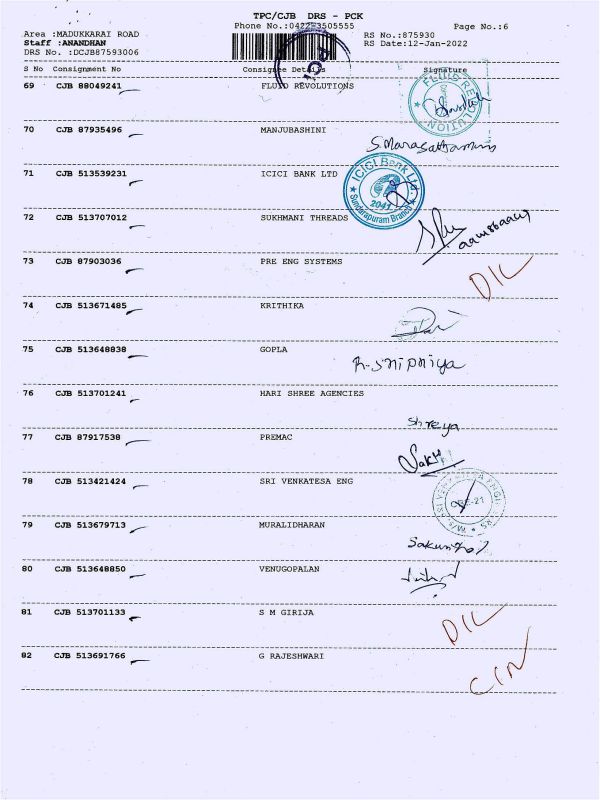 TPC/CJB DRS - PCK
Phone No.:0422-3505555 Page No.:6
Area :MADUKKARAI ROAD RS No.:875930
Staff :ANANDHAN RS Date:12-Jan-2022
DRS No. :DCJB87593006
S No Consignment No Consignee Details Signature
69 CJB 88049241 FLUID REVOLUTIONS
FLUID REVOLUTION
70 CJB 87935496 MANJUBASHINI
71 CJB 513539231 ICICI BANK LTD
ICICI Bank Ltd.
2041
Sundarapuram Branch
72 CJB 513707012 SUKHMANI THREADS
73 CJB 87903036 PRE ENG SYSTEMS
DIL
74 CJB 513671485 KRITHIKA
75 CJB 513648838 GOPLA
R-Snipniya
76 CJB 513701241 HARI SHREE AGENCIES
Shreya
77 CJB 87917538 PREMAC
Sakthi
78 CJB 513421424 SRI VENKATESA ENG
79 CJB 513679713 MURALIDHARAN
80 CJB 513648850 VENUGOPALAN
81 CJB 513701133 S M GIRIJA
DIL
82 CJB 513691766 G RAJESHWARI
CIN